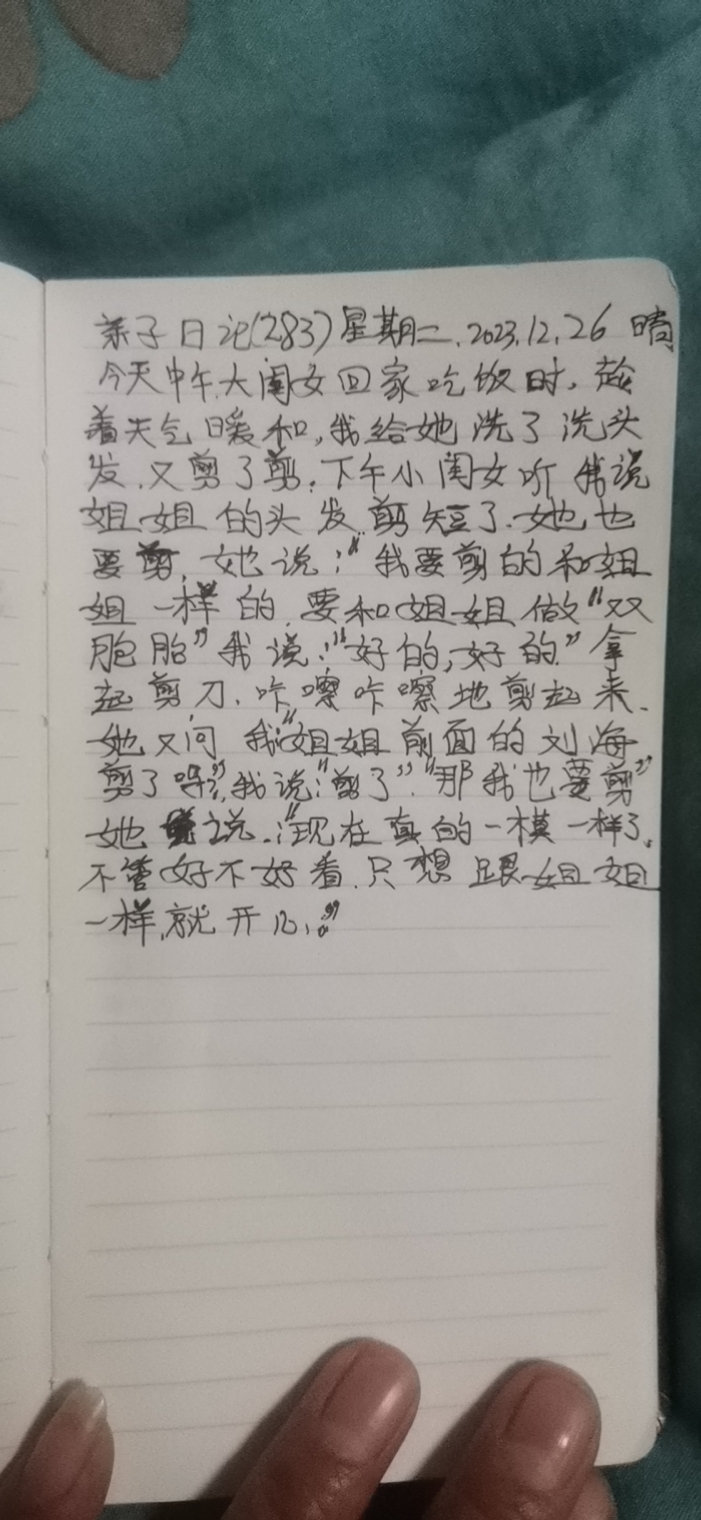 亲子日记(283)星期二.2023.12.26 晴
今天中午.大闺女回家吃饭时.趁
着天气暖和,我给她洗了洗头
发.又剪了剪.下午小闺女听我说
姐姐的头发剪短了.她也
要剪.她说:"我要剪的和姐
姐一样的.要和姐姐做"双
胞胎"我说:"好的,好的."拿
起剪刀.咔嚓咔嚓地剪起来.
她又问我:"姐姐前面的刘海
剪了吗?",我说:"剪了"."那我也要剪"
她说.:"现在真的一模一样了.
不管好不好看.只想跟姐姐
一样.就开心。"